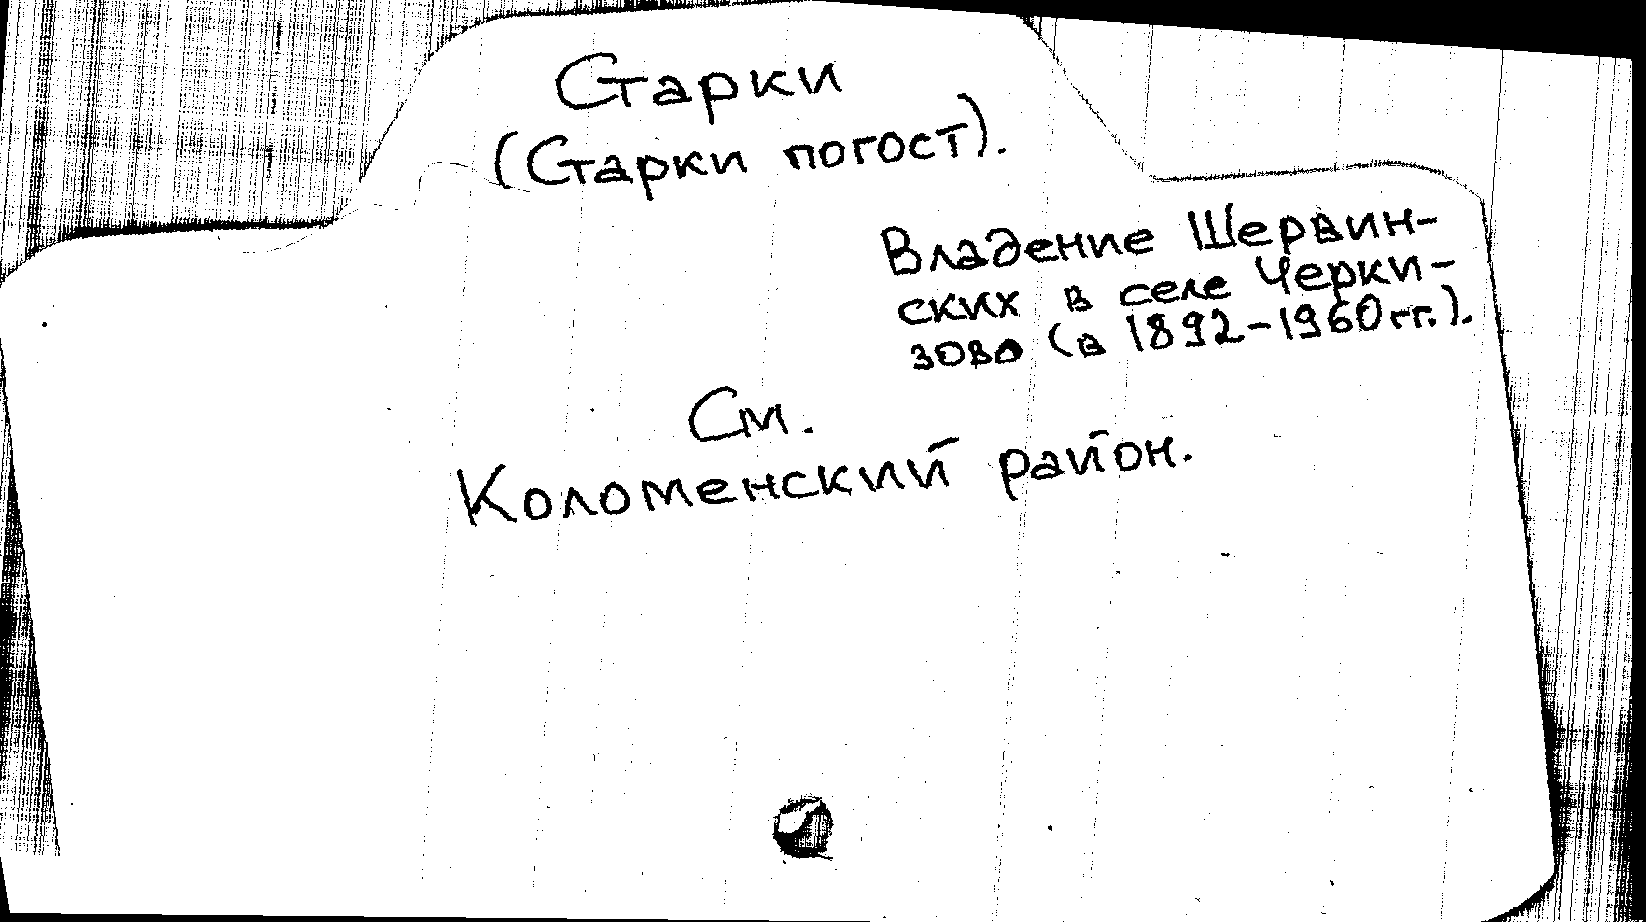 Старки
(Старки погост).
Владение Шервин-
ских в селе Черки-
зово (в 1892-1960 гг.).
См.
Коломенский район.